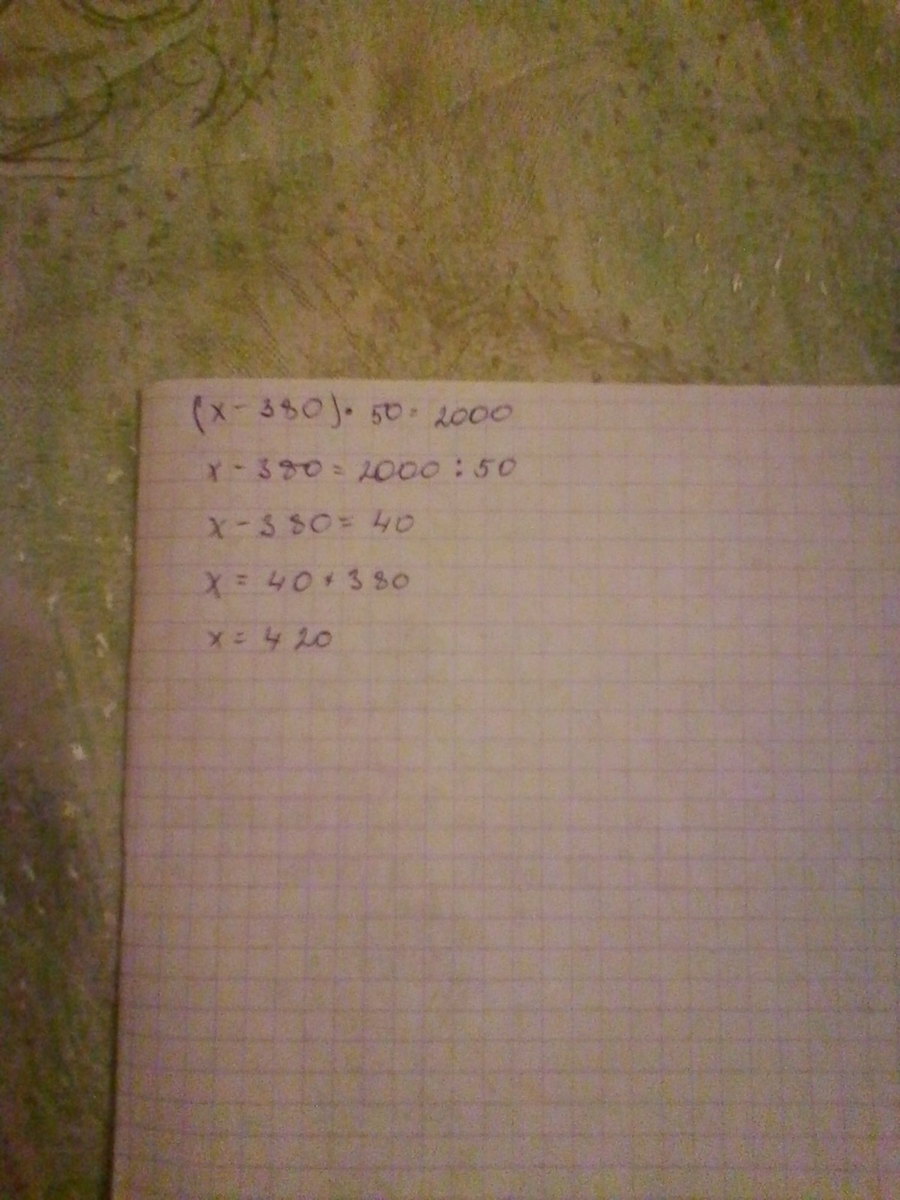 (x - 380) · 50 = 2000
x - 380 = 2000 : 50
x - 380 = 40
x = 40 + 380
x = 420